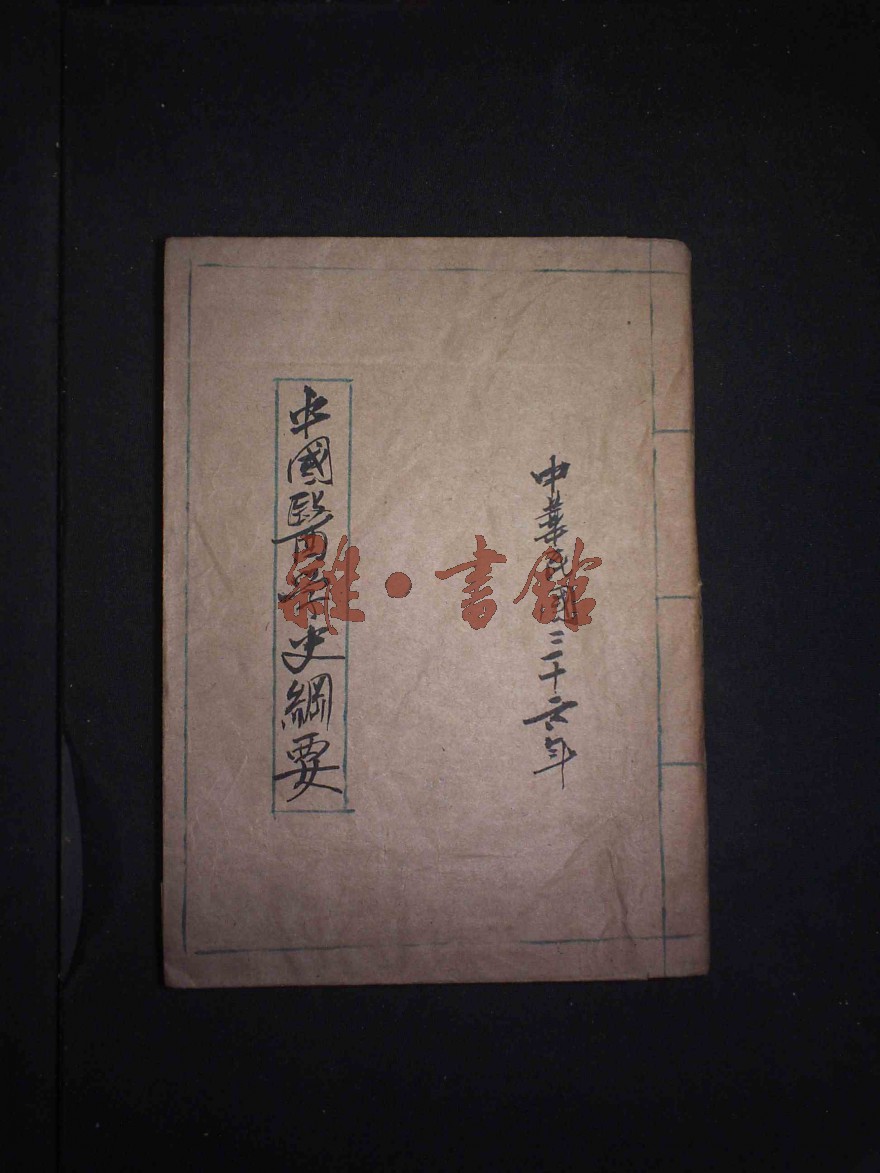 中華民國三十六年
中國醫学史綱要
雜·書館